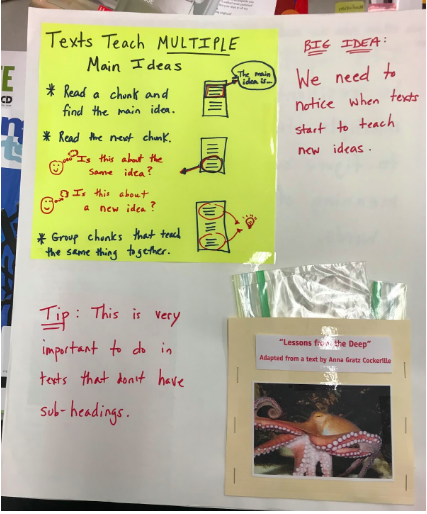 Texts Teach MULTIPLE
Main Ideas
* Read a chunk and
find the main idea.
The main
idea is...
* Read the next chunk.
Is this about the
same idea?
Is this about
a new idea?
* Group chunks that teach
the same thing together.
BIG IDEA:
We need to
notice when texts
start to teach
new ideas.
Tip: This is very
important to do in
texts that don't have
sub-headings.
"Lessons from the Deep"
Adapted from a text by Anna Gratz Cockerille